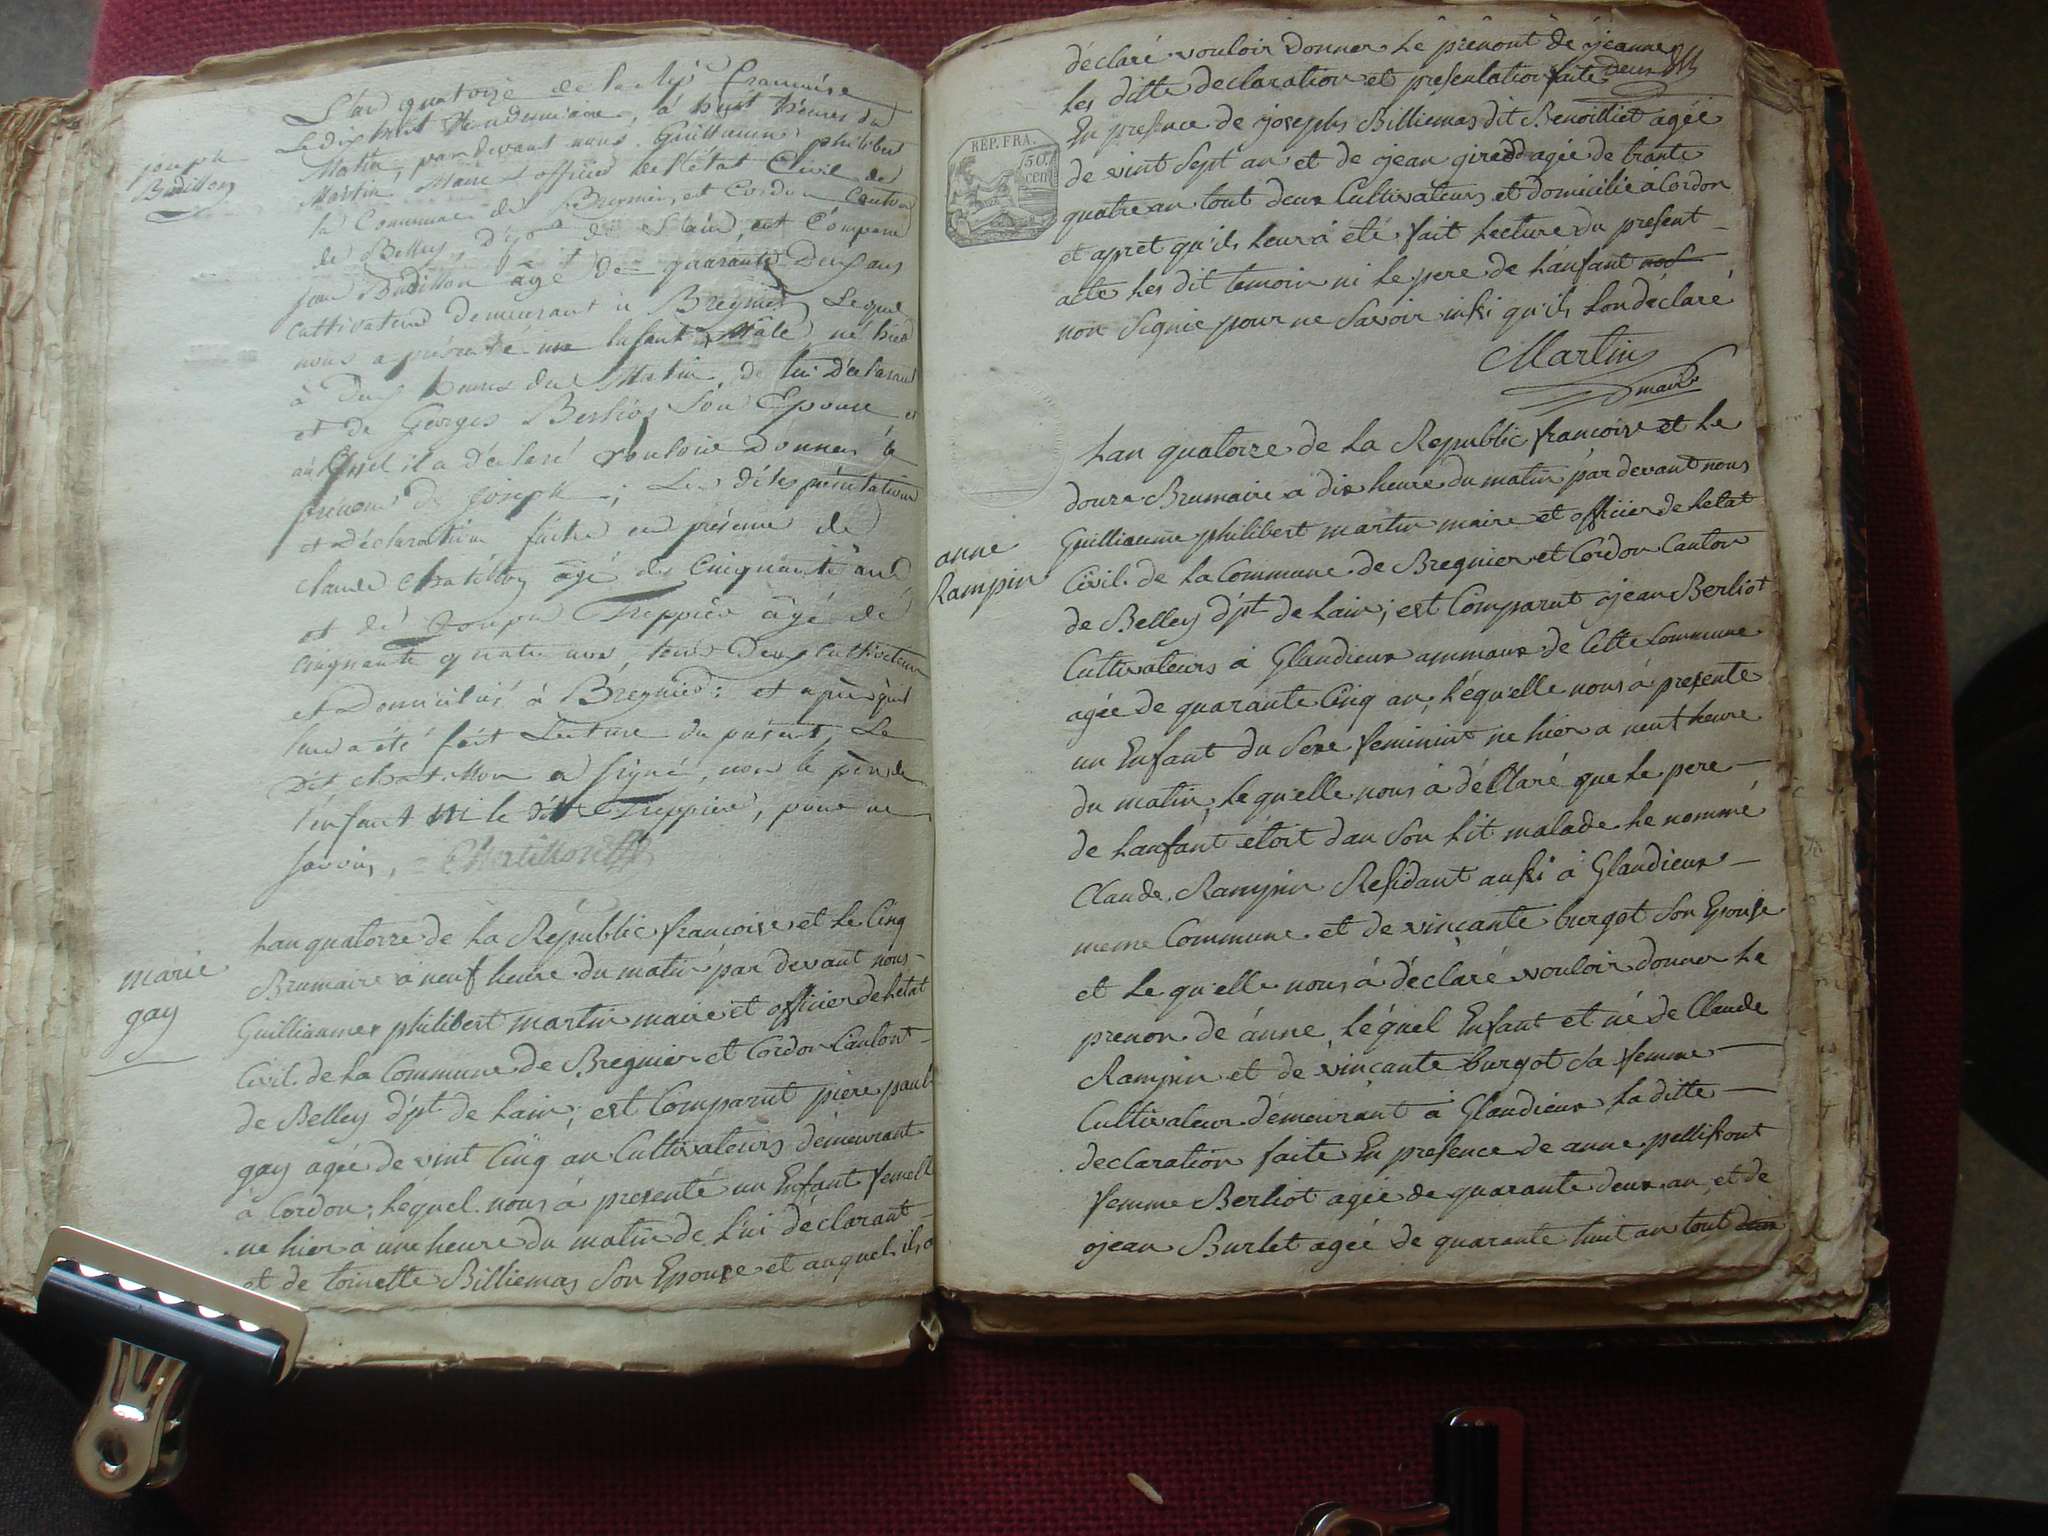 joseph
Budillon
L'an quatorze de la Rép. Française
Le dix huit Vendemiaire, à huit heures du
Matin, pardevant nous Guillaume philibert
Martin Maire & officier de l'état Civil de
la Commune de Bregnier, et Cordon Canton
de Belley, dép.t de l'ain, est Comparu
jean Budillon âgé de quarante Deux ans
Cultivateur demeurant à Bregnier Lequel
nous a présenté un Enfant Mâle, né hier
à Dix heures du Matin, de lui Déclarant
et de Georges Berlios Son Epouse et
auquel il a déclaré vouloir donner le
prénom de joseph; Les dites présentation
et Déclaration faites en présence de
claude chatillon âgé de Cinquante ans
et de Treppier âgé de
Cinquante quatre ans, tous Deux Cultivateurs
et Domiciliés à Bregnier: et après qu'il
leur a été fait Lecture du présent, Le
Dit chatillon a signé, non le père de
l'enfant ni le dit Treppier, pour ne
savoir, = Chatillon
marie
gay
Lan quatorze de La Républic francoise et Le Cinq
Brumaire à neuf heure du matin par devant nous
Guilliaumes philibert martin maire et officier de Letat
Civil de La Commune de Bregnier et Cordon Canton
de Belley dépt de Lain; est Comparut piere paul
gay agée de vint Cinq an Cultivateurs démeurant
à Cordon, Léquel nous à presenté un Enfant femell
né hier à une heure du matin de Lui déclarant
et de toinette Billiemas Son Epouse et auquel il à
déclaré vouloir Donner Le prénont de ojeanne
Les ditte declaration et présentation faite deux
En presence de ojosephs Billiemas dit Benoilliet agée
de vint Sept an et de ojean girodd agée de trante
quatre an tout deux Cultivateurs et domicilié à Cordon
et apret qu'ils leur à été fait Lecture du present
acte Les dit temoin ni Le pere de Lanfant
non Signie pour ne Savoir insi qu'ils Lon déclaré
Martin
maire
REP. FRA.
50
CEN
anne
Rampin
Lan quatorze de La Républic francoise et Le
douze Brumaire à dix heure du matin par devant nous
Guilliaume philibert martin maire et officier de Letat
Civil de La Commune de Bregnier et Cordon Canton
de Belley dépt de Lain; est Comparut ojean Berliot
Cultivateurs à Glandieux ammaux de Cette Commune
agée de quarante Cinq an, Léquelle nous à presente
un Enfant du Sexe feminint ne hier a neuf heure
du matin, Lequelle nous à déclaré que Le pere
de Lanfant étoit dan Son Lit malade Le nommé
Claude Rampin Residant aussi à Glandieux
meme Commune et de vinçante burgot Son Epouse
et Lequelle nous à déclaré vouloir donner Le
prenon de ánne, Léquel Enfant et né de Claude
Rampin et de vinçante burgot Sa femme
Cultivateur démeurant à Glandieux La ditte
declaration faite En presence de anne pellissont
femme Berliot agée de quarante deux an, et de
ojean Burlet agée de quarante huit an tout deux